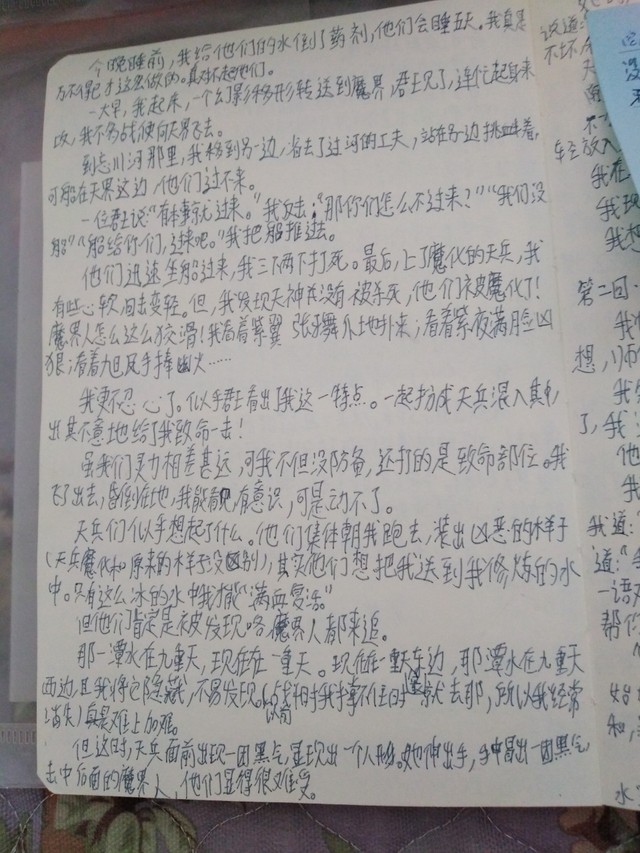 今晚睡前，我给他们的水倒了药剂，他们会睡五天。我真是
万不得已才这么做的。真对不起他们。
一大早，我起来，一个幻影移形转送到魔界，君王见了，连忙起身来
我不多战便向天界飞去。
到忘川河那里，我移到另一边，省去了过河的工夫，站在另一边挑衅着，
可船在天界这边，他们过不来。
一位君王说："有本事就过来。"我反击："那你们怎么不过来？""我们没
船""船给你们，过来吧。"我把船推过去。
他们迅速坐船过来，我三下两下打死。最后，上了魔化的天兵，我
有些心软，回击变轻。但，我发现天神兵没有被杀死，他们被魔化了！
魔界人怎么这么狡滑！我看着紫翼张牙舞爪地扑来；看着紫夜满脸凶
狠；看着旭手捧幽火……
我更不忍心了。似乎君王看出了我这一特点。一起扮成天兵混入其中，
出其不意地给了我致命一击！
虽我们灵力相差甚远，可我不但没防备，还打的是致命部位。我
飞了出去，昏倒在地，我能看见，有意识，可是动不了。
天兵们似乎想起了什么。他们集体朝我跑去，装出凶恶的样子
(天兵魔化和原来的样子没区别)，其实他们想把我送到我修炼的水
中。只有这么冰的水中我才能"满血复活"
但他们肯定是被发现咯，魔界人都来追。
那一潭水在九重天，现在在一重天。现在在一重天东边，那潭水在九重天
西边，且我将它隐藏，不易发现。(以前打架撑不住时就去那，所以我经常
消失)真是难上加难。
但这时，天兵面前出现一团黑气，显现出一个人形。她伸出手，手中冒出一团黑气，
击中后面的魔界人，他们显得很难受。
说道：
不坏
天
不
轻放入
我在
我现
我想
第二回
我
想，
了，我
他
我
我道：
道："
一语
帮你
和，
水
没